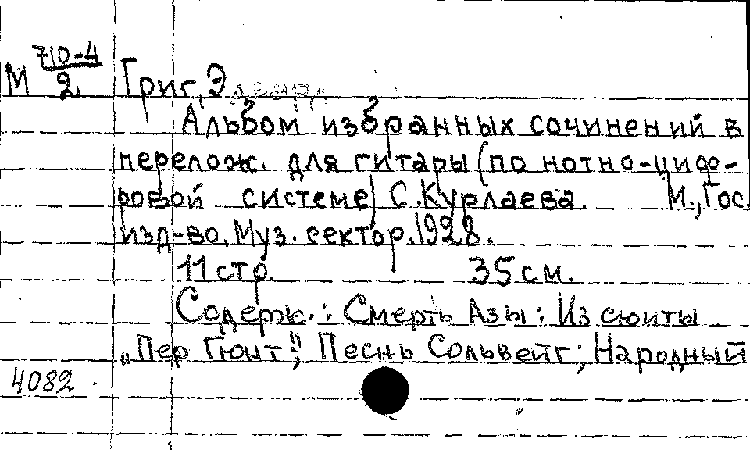 М 710-4/2 Григ, Э
Альбом избранных сочинений в
перелож. для гитары (по нотно-цифо-
ровой системе) С. Курлаева. М., Гос.
изд-во, Муз. сектор. 1928.
11 стр. 35 см.
Содерж.: Смерть Азы: Из сюиты
„Пер Гюнт"; Песнь Сольвейг; Народный
4082